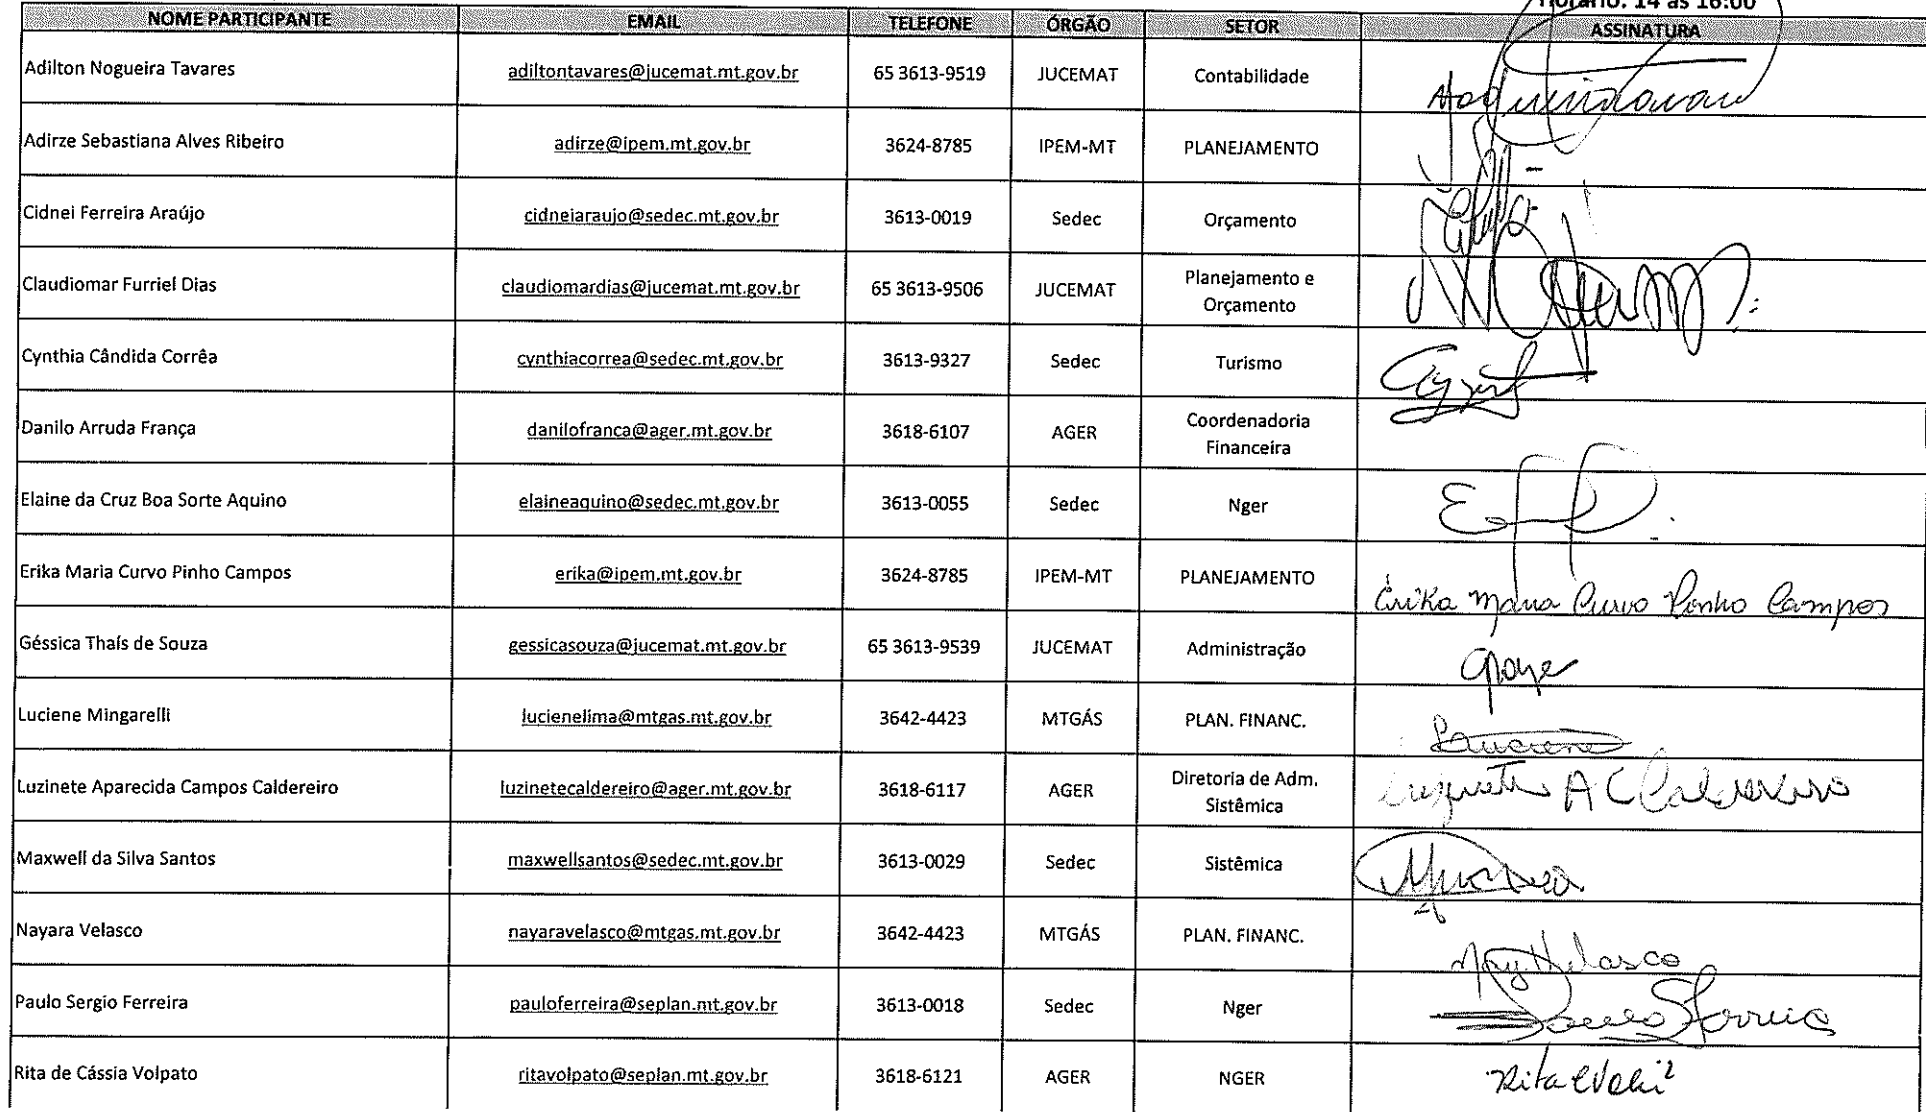 Horário: 14 às 16:00
NOME PARTICIPANTE EMAIL TELEFONE ÓRGÃO SETOR ASSINATURA
Adilton Nogueira Tavares adiltontavares@jucemat.mt.gov.br 65 3613-9519 JUCEMAT Contabilidade
Adirze Sebastiana Alves Ribeiro adirze@ipem.mt.gov.br 3624-8785 IPEM-MT PLANEJAMENTO
Cidnei Ferreira Araújo cidneiaraujo@sedec.mt.gov.br 3613-0019 Sedec Orçamento
Claudiomar Furriel Dias claudiomardias@jucemat.mt.gov.br 65 3613-9506 JUCEMAT Planejamento e
Orçamento
Cynthia Cândida Corrêa cynthiacorrea@sedec.mt.gov.br 3613-9327 Sedec Turismo
Danilo Arruda França danilofranca@ager.mt.gov.br 3618-6107 AGER Coordenadoria
Financeira
Elaine da Cruz Boa Sorte Aquino elaineaquino@sedec.mt.gov.br 3613-0055 Sedec Nger
Erika Maria Curvo Pinho Campos erika@ipem.mt.gov.br 3624-8785 IPEM-MT PLANEJAMENTO Érika Maria Curvo Pinho Campos
Géssica Thaís de Souza gessicasouza@jucemat.mt.gov.br 65 3613-9539 JUCEMAT Administração
Luciene Mingarelli lucienelima@mtgas.mt.gov.br 3642-4423 MTGÁS PLAN. FINANC.
Luzinete Aparecida Campos Caldereiro luzinetecaldereiro@ager.mt.gov.br 3618-6117 AGER Diretoria de Adm. Luzinete A C Caldereiro
Sistêmica
Maxwell da Silva Santos maxwellsantos@sedec.mt.gov.br 3613-0029 Sedec Sistêmica
Nayara Velasco nayaravelasco@mtgas.mt.gov.br 3642-4423 MTGÁS PLAN. FINANC. Nay Velasco
Paulo Sergio Ferreira pauloferreira@seplan.mt.gov.br 3613-0018 Sedec Nger
Rita de Cássia Volpato ritavolpato@seplan.mt.gov.br 3618-6121 AGER NGER Rita